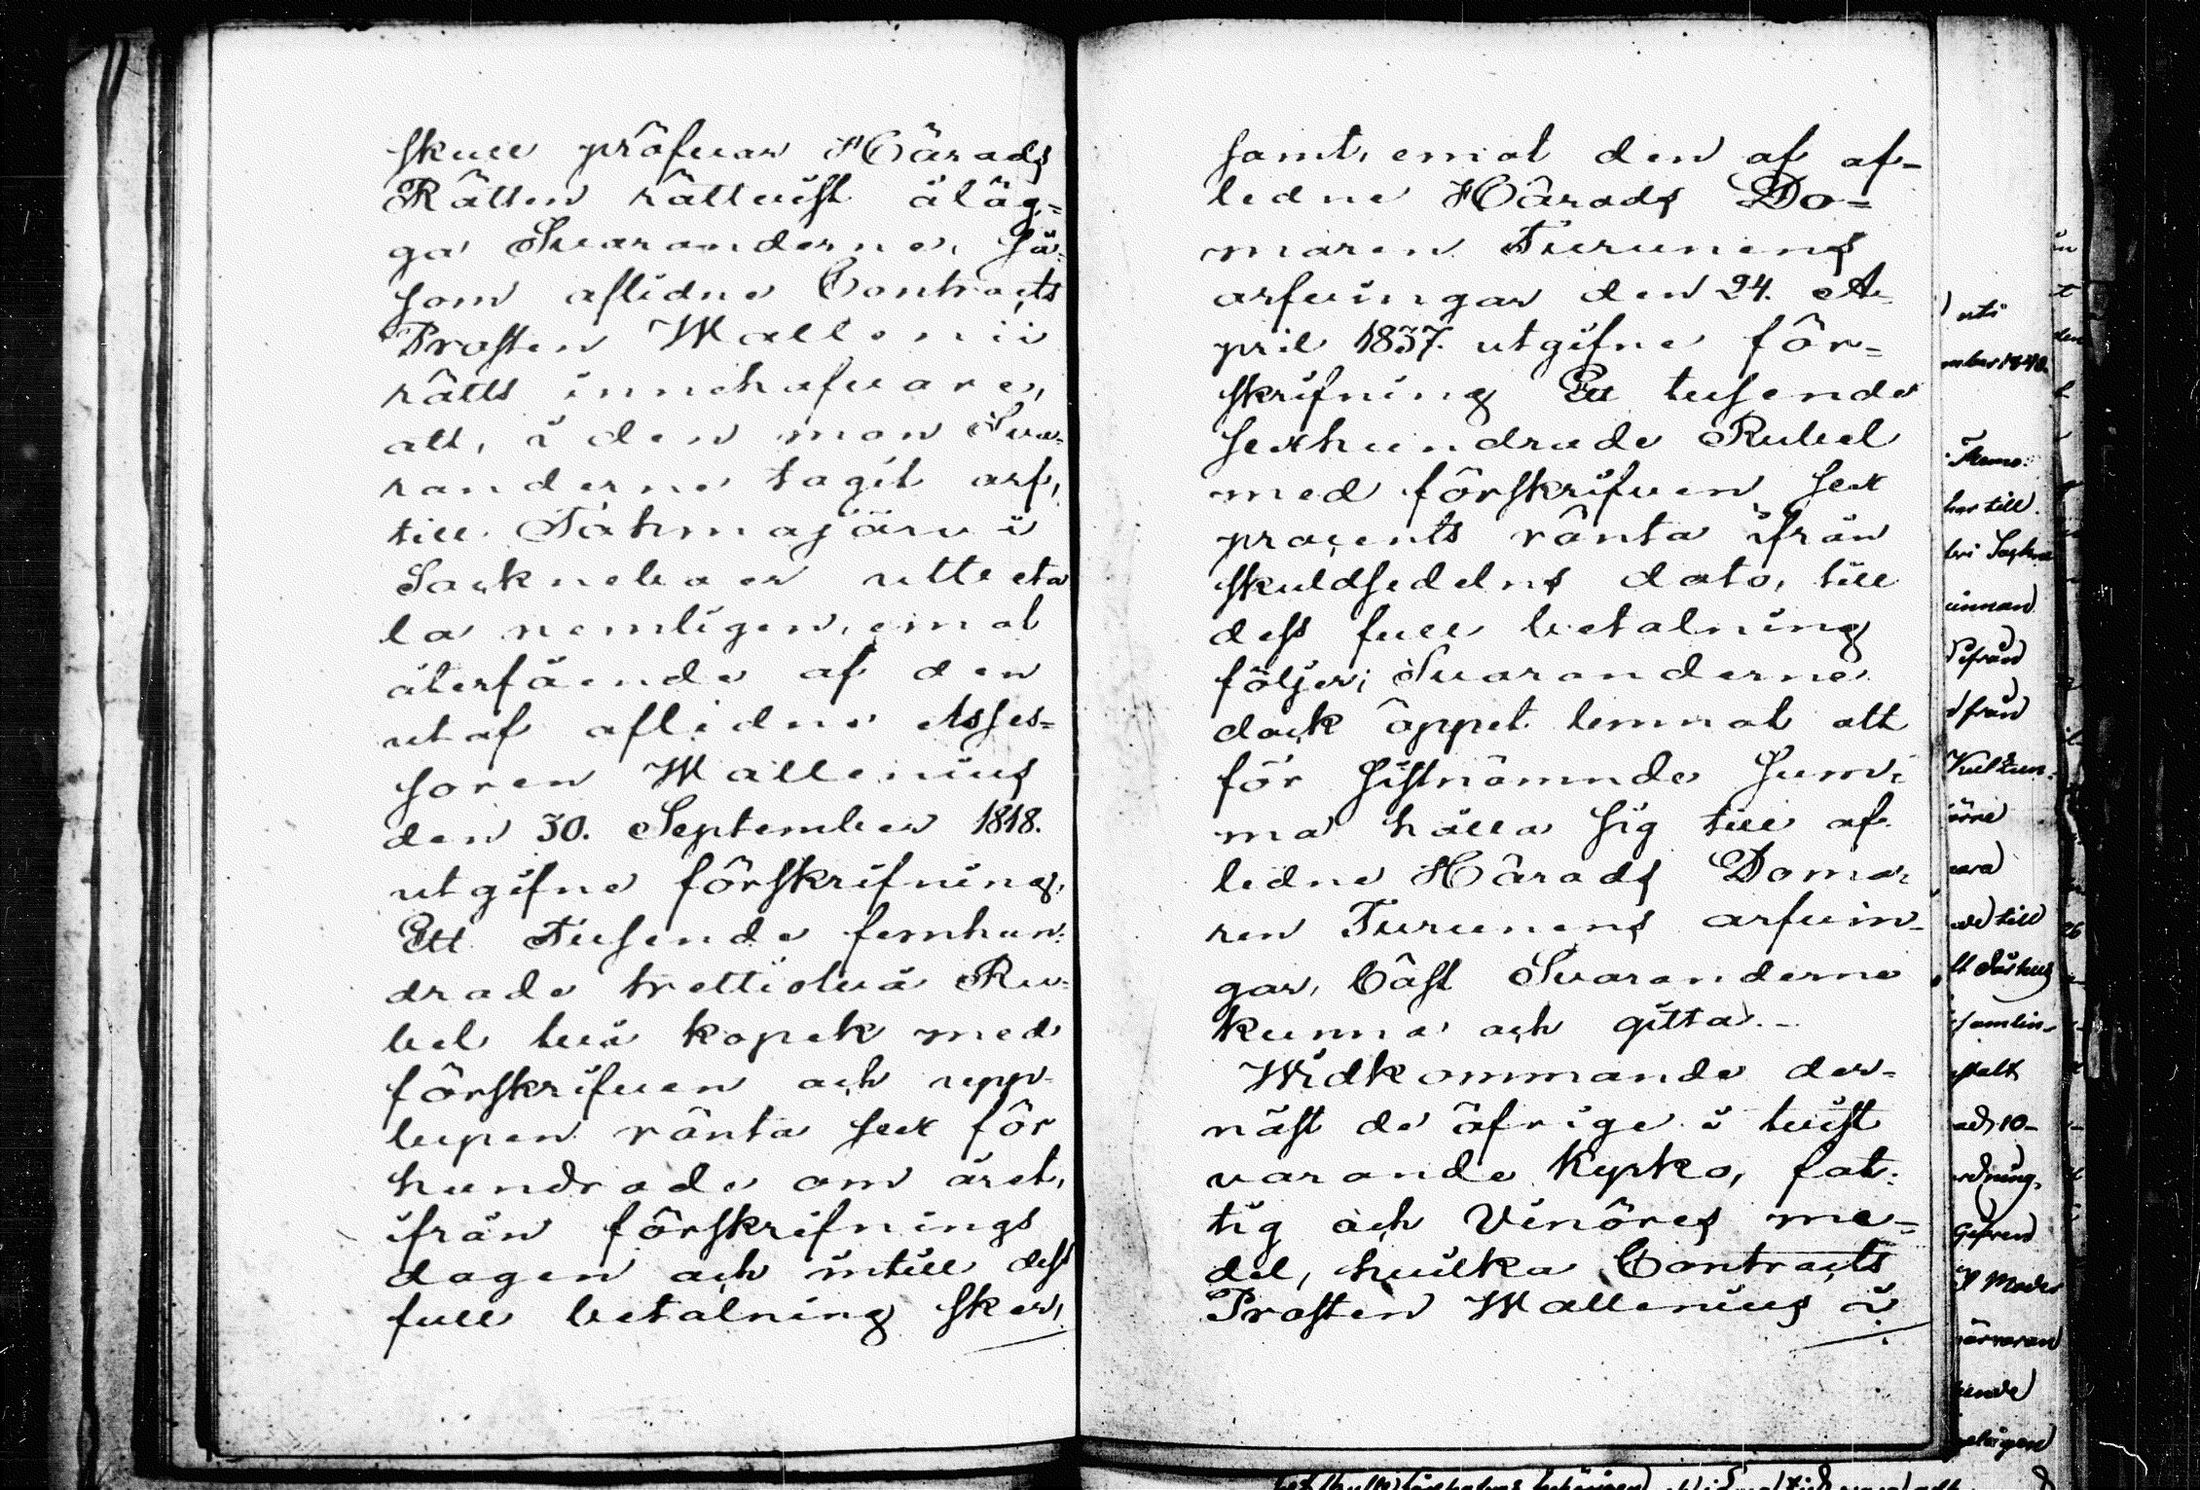 skull pröfvar Härads
Rätten rättvist åläg=
ga Svaranderne, så=
som aflidne Contracts
Prosten Wallenii
rätts innehafvare,
att, i den mon Sva=
randerne tagit arf,
till Tohmajärvi
Sockneboer utbeta
la nemligen, emot
återfående af den
utaf aflidne Asses=
soren Wallenius
den 30. September 1818.
utgifne förskrifning,
Ett Tusende femhun=
drade trettiotvå Ru=
bel två kopek med
förskrifven och upp=
lupen ränta sex för
hundrade om året,
ifrån förskrifnings
dagen och intill dess
full betalning sker,
samt, emot den af af=
ledne Härads Do=
maren Turunens
arfvingar den 24. A=
pril 1837. utgifne för=
skrifning Ett tusende
sexhundrade Rubel
med förskrifven sex
procents ränta ifrån
skuldsedelns dato, till
dess full betalning
följer; Svaranderne
dock öppet lemnat att
för sistnämnde Sum=
ma hålla sig till af
ledne Härads Doma=
ren Turunens arfvin=
gar, bäst Svaranderne
kunna och gitta.-
Widkommande der=
näst de öfrige i tvist
varande kyrko, fat=
tig och Vinöres me=
del, hvilka Contracts
Prosten Wallenius i
uti
mber 1840.
har till
innan
ifrån
från
till